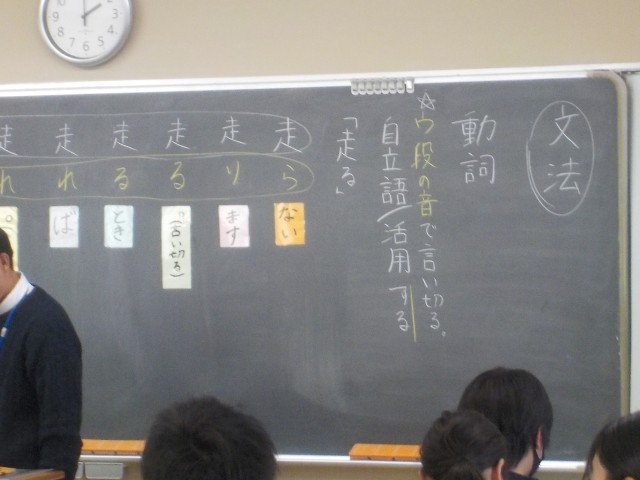 文法
動詞
☆ウ段の音で言い切る。
自立語/活用する
「走る」
走らない
走ります
走る。(言い切る)
走るとき
走れば
走れ。
12
1
2
3
4
5
6
7
8
9
10
11